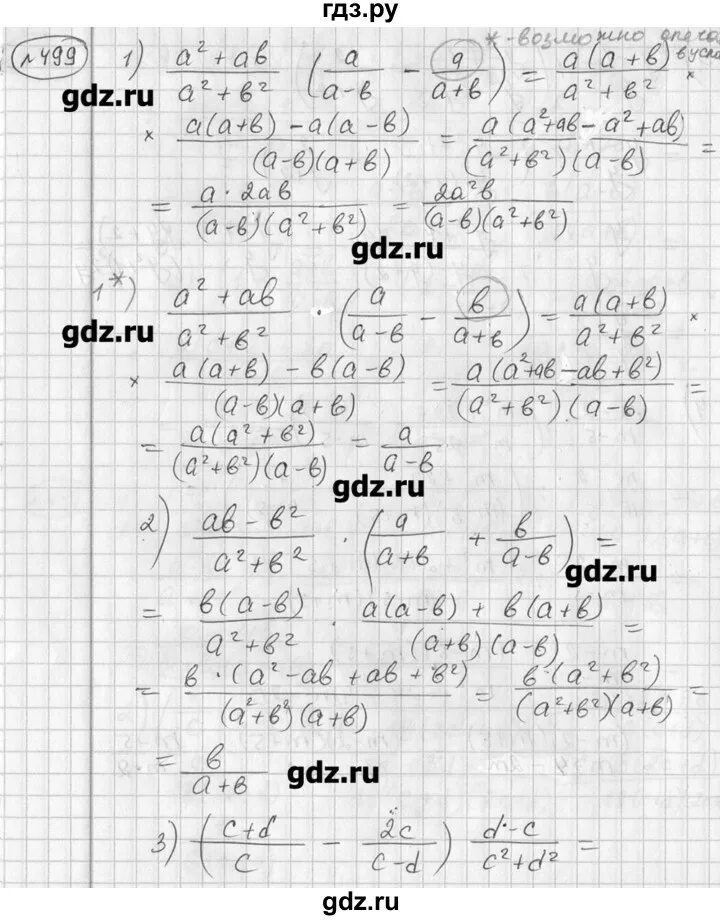 гдз.ру
* - возможно опеча
№499 1) (a² + ab)/(a² + b²) (a/(a-b) - a/(a+b)) = a(a+b)/(a² + b²) ×
gdz.ru
× (a(a+b) - a(a-b))/((a-b)(a+b)) = a(a²+ab - a² + ab)/((a²+b²)(a-b)) =
= a·2ab/((a-b)(a²+b²)) = 2a²b/((a-b)(a²+b²))
gdz.ru
1*) (a² + ab)/(a² + b²) · (a/(a-b) - b/(a+b)) = a(a+b)/(a² + b²) ×
gdz.ru
× (a(a+b) - b(a-b))/((a-b)(a+b)) = a(a²+ab-ab+b²)/((a²+b²)·(a-b)) =
= a(a²+b²)/((a²+b²)(a-b)) = a/(a-b)
gdz.ru
2) (ab - b²)/(a² + b²) · (a/(a+b) + b/(a-b)) =
gdz.ru
= b(a-b)/(a² + b²) · (a(a-b) + b(a+b))/((a+b)(a-b)) =
= b·(a² - ab + ab + b²)/((a²+b²)(a+b)) = b·(a²+b²)/((a²+b²)(a+b)) =
= b/(a+b)
gdz.ru
3) ((c+d)/c - 2c/(c-d)) (d-c)/(c²+d²) =
gdz.ru